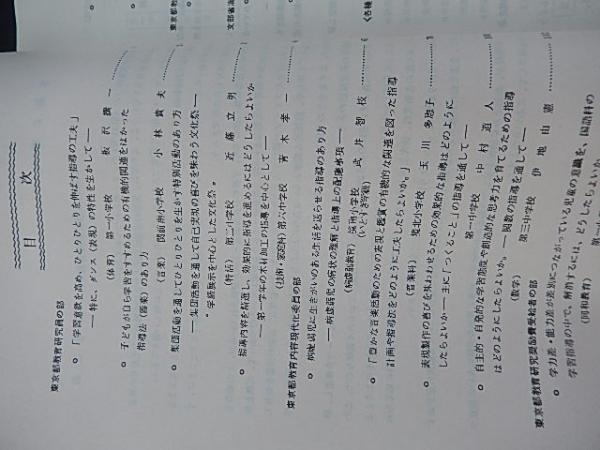 目次
東京都教育研究員の部
○「学習意欲を高め、ひとりひとりを伸ばす指導の工夫」
――特に、ダンス(表現)の特性を生かして――
(体育) 第一小学校 板沢 讃一
○子どもが自ら学習をすすめるための有機的関連をはかった
指導法(器楽)のあり方
(音楽) 関前南小学校 小林貴夫
○集団活動を通してひとりひとりを生かす特別活動のあり方
――集団活動を通して自己実現の喜びを味わう文化祭――
"学級展示を中心とした文化祭"
(特活) 第二小学校 近藤立男
○指導内容を精選し、効果的に指導を進めるにはどうしたらよいか
――第一学年の木材加工の指導を中心として――
(技術・家庭科) 第六中学校 青木孝一
東京都教育内容現代化委員の部
○病虚弱児に生きがいのある生活を送らせる指導のあり方
――病虚弱者の病状の理解と指導上の配慮事項――
(病虚弱教育) 境南小学校 武井智校
(いとすぎ学級)
○「豊かな音楽活動のための表現と鑑賞の有機的な関連を図った指導
計画や指導法をどのように工夫したらよいか。」
(音楽科) 境北小学校 玉川多恵子
○表現製作の喜びを味わわせるための効果的な指導はどのように
したらよいか――主に「つくること」の指導を通して――
第一中学校 中村道人
○自主的・自発的な学習態度や創造的な思考力を育てるための指導
はどのようにしたらよいか。――関数の指導を通して――
(数学) 第三中学校 伊地由恵
東京都教育研究奨励費受給者の部
○学力差・能力差が差別につながっている児童の意識を、国語科の
学習指導の中で、解消するには、どうしたらよいか
(同和教育)
東京都教
文部省派
〈各種